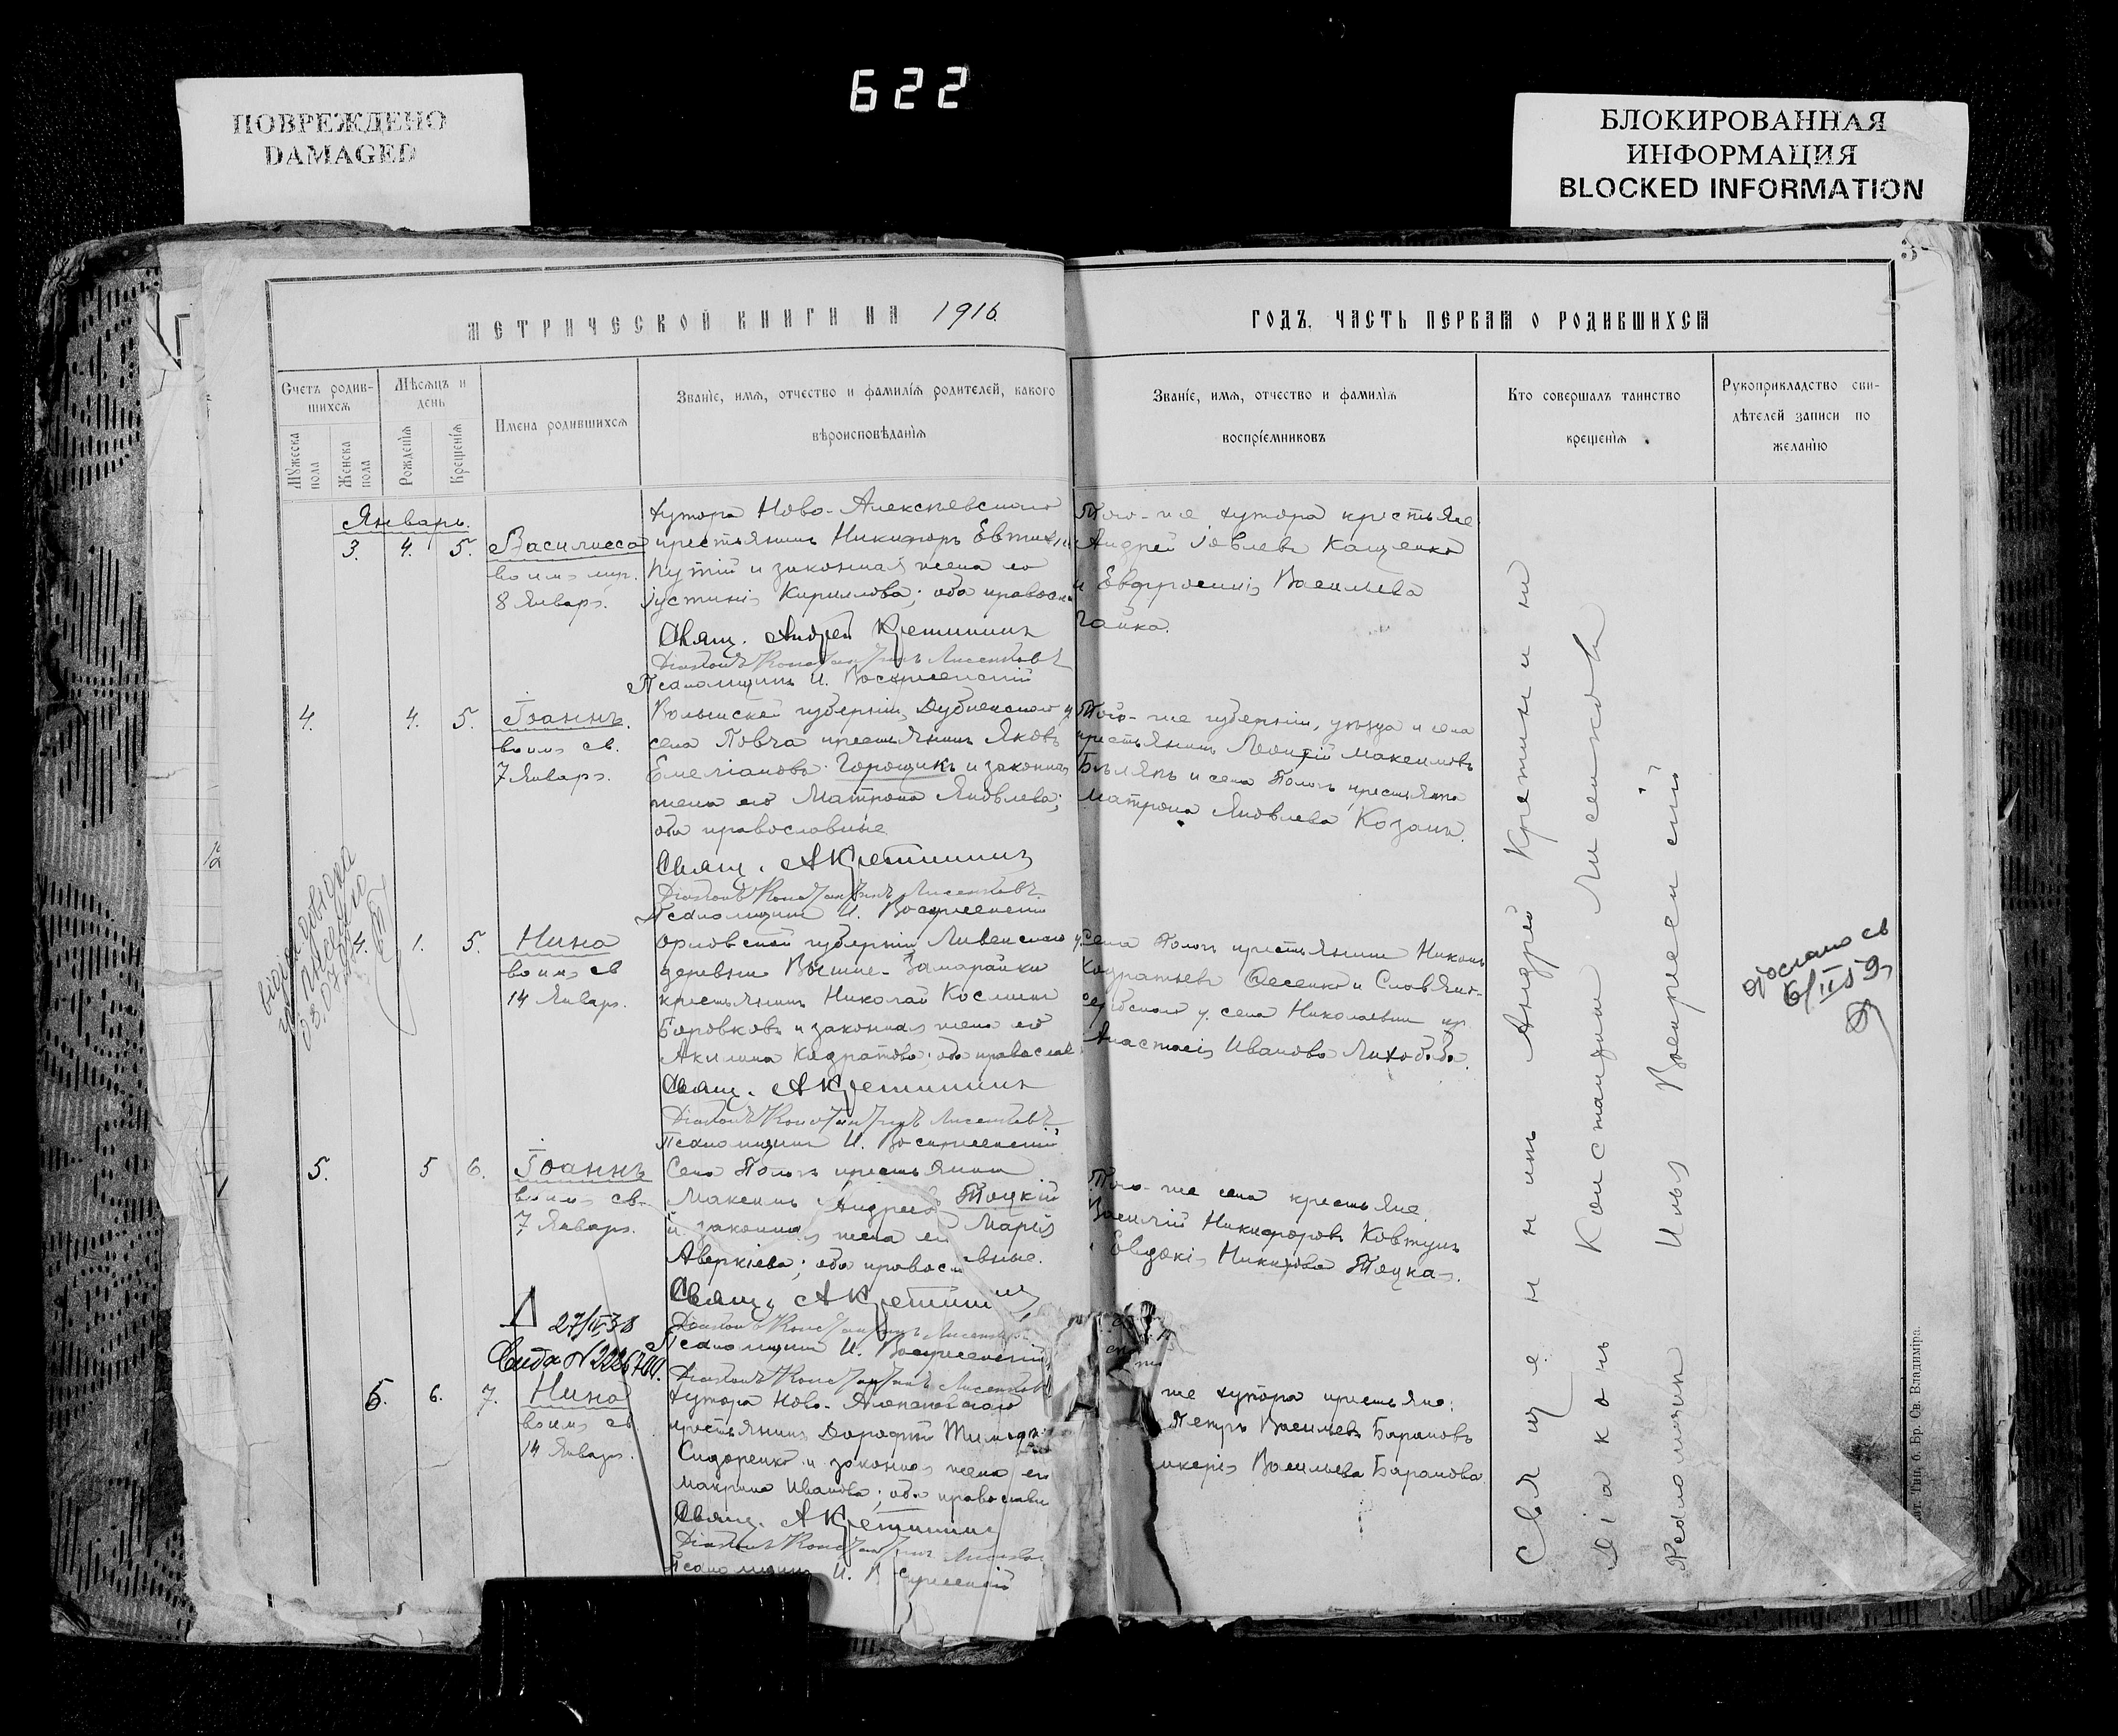 622
ПОВРЕЖДЕНО
DAMAGED
БЛОКИРОВАННАЯ
ИНФОРМАЦИЯ
BLOCKED INFORMATION
МЕТРИЧЕСКОЙ КНИГИ НА 1916
ГОДЪ, ЧАСТЬ ПЕРВАЯ О РОДИВШИХСЯ
Счетъ родив-
шихся
Мужеска пола
Женска пола
Мѣсяцъ и
день
Рожденія
Крещенія
Имена родившихся
Званіе, имя, отчество и фамилія родителей, какого
вѣроисповѣданія
Званіе, имя, отчество и фамилія
воспріемниковъ
Кто совершалъ таинство
крещенія
Рукоприкладство сви-
дѣтелей записи по
желанію
Январь.
3. 4. 5.
Василисса
во имя муч.
8 Января.
хутора Ново-Алексѣевскаго
крестьянинъ Никифоръ
и законная жена его
Іустинія Кириллова; оба правосл
Свящ. Андрей Кретининъ
Діаконъ Константинъ Лисенковъ
Псаломщикъ И. Воскресенскій
Того-же хутора крестьяне
Андрей Іовлевъ Кащенко
и Евфросинія Васильева
Гайка.
4. 4. 5.
Іоаннъ.
во имя св.
7 Января.
Волынской губерніи, Дубненскаго у
села Повча крестьянинъ Яковъ
Емеліановъ Горощикъ и законная
жена его Матрона Яковлева;
оба православные
Свящ. А Кретининъ
Діаконъ Константинъ Лисенковъ
Псаломщикъ И. Воскресенскій
Того-же губерніи, уѣзда и села
крестьянинъ Максимовъ
и села Пологъ крестьянка
Матрона Яковлева Козакъ.
4. 1. 5.
Нина
во имя св
14 Января.
Орловской губерніи Ливенскаго у.
деревни
крестьянинъ Николай Косминъ
Боровковъ и законная жена его
Акилина Кодратова; оба православ
Свящ. А Кретининъ
Діаконъ Константинъ Лисенковъ
Псаломщикъ И. Воскресенскій
Села Пологъ крестьянинъ
Кодратьевъ и Славяно-
сербскаго у. села Николаевки кр.
Анастасія Иванова Лихобаба.
5. 5 6.
Іоаннъ
во имя св.
7 Января.
Села Пологъ крестьянинъ
Максимъ Андреевъ Тоцкій
и законная жена его Марія
Аверкіева; оба правосл вные.
Свящ. А Кретинин
Діаконъ Константинъ Лисенковъ
Псаломщикъ И. Воскресенскій
Того-же села крестьяне
Василій Никифоровъ Ковтунъ
Евдокія Тоцкая.
27/II 38
6. 6. 7.
Нина
во имя св
14 Января.
Діаконъ Константинъ Лисенков
хутора Ново-
крестьянинъ Дорофей
Сидоренко и законная жена его
Макрина Иванова; оба православн
Свящ. А Кретининъ
Діаконъ Константинъ
Псаломщикъ И. В скресенскій
же хутора крестьяне:
Петръ Васильевъ Барановъ
икерія Васильева Баранова
Священникъ Андрей Кретининъ
Діаконъ Константинъ Лисенковъ
Псаломщикъ Илья Воскресенскій
6/II 59
Тип. б. Бр. Св. Владиміра.